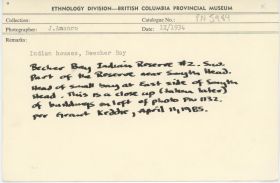 ETHNOLOGY DIVISION—BRITISH COLUMBIA PROVINCIAL MUSEUM
Collection: Catalogue No.: PN 5994
Photographer: J.Amunro Date: 12/1934
Remarks:
Indian houses, Beecher Bay
Becher Bay Indian Reserve #2. S.W.
Part of the Reserve near Smyth Head.
Head of small bay at East side of Smyth
Head. This is a close up (taken later)
of buildings on left of photo PN 1132.
per Grant Keddie, April 11, 1985.